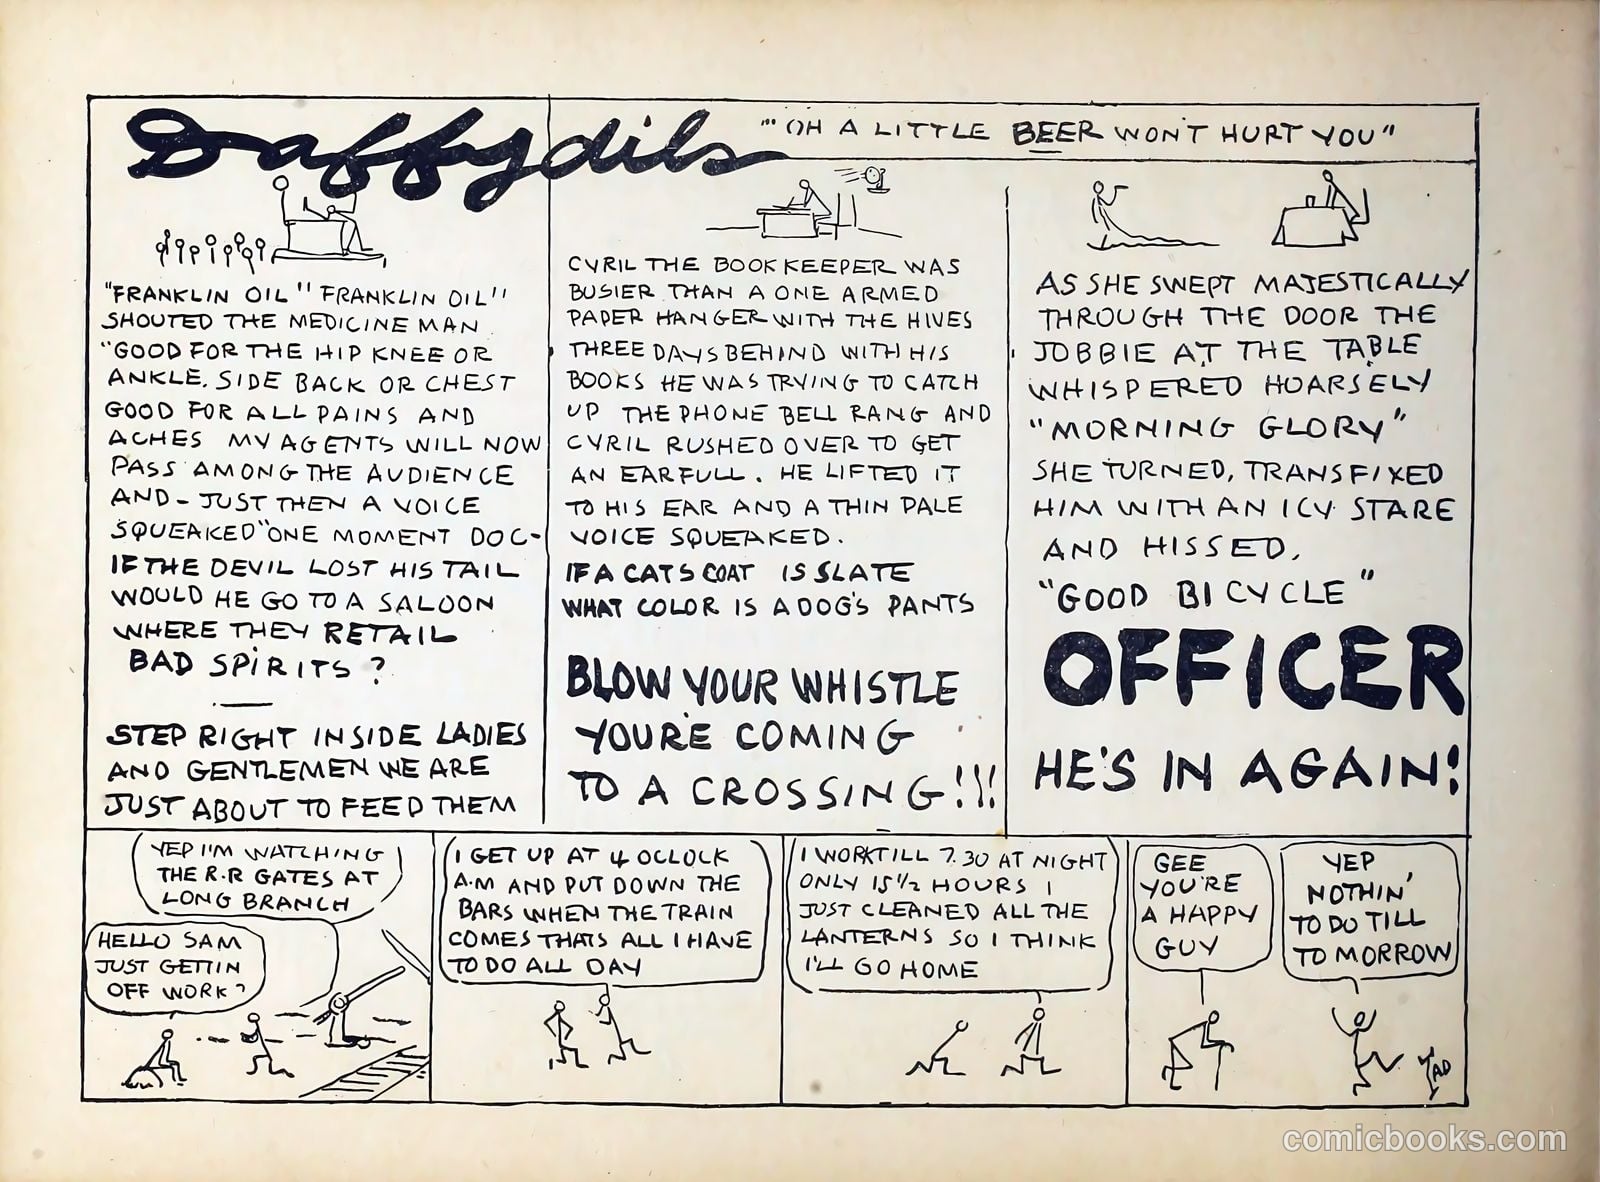 Daffydils
"'OH A LITTLE BEER WON'T HURT YOU"
"FRANKLIN OIL" "FRANKLIN OIL"
SHOUTED THE MEDICINE MAN
"GOOD FOR THE HIP KNEE OR
ANKLE. SIDE BACK OR CHEST
GOOD FOR ALL PAINS AND
ACHES MY AGENTS WILL NOW
PASS AMONG THE AUDIENCE
AND - JUST THEN A VOICE
SQUEAKED "ONE MOMENT DOC-
IF THE DEVIL LOST HIS TAIL
WOULD HE GO TO A SALOON
WHERE THEY RETAIL
BAD SPIRITS?
STEP RIGHT INSIDE LADIES
AND GENTLEMEN WE ARE
JUST ABOUT TO FEED THEM
CYRIL THE BOOKKEEPER WAS
BUSIER THAN A ONE ARMED
PAPER HANGER WITH THE HIVES
THREE DAYS BEHIND WITH HIS
BOOKS HE WAS TRYING TO CATCH
UP THE PHONE BELL RANG AND
CYRIL RUSHED OVER TO GET
AN EARFULL. HE LIFTED IT
TO HIS EAR AND A THIN PALE
VOICE SQUEAKED.
IF A CATS COAT IS SLATE
WHAT COLOR IS A DOG'S PANTS
BLOW YOUR WHISTLE
YOU'RE COMING
TO A CROSSING!!!
AS SHE SWEPT MAJESTICALLY
THROUGH THE DOOR THE
JOBBIE AT THE TABLE
WHISPERED HOARSELY
"MORNING GLORY"
SHE TURNED, TRANSFIXED
HIM WITH AN ICY STARE
AND HISSED,
"GOOD BICYCLE"
OFFICER
HE'S IN AGAIN!
YEP I'M WATCHING
THE R.R GATES AT
LONG BRANCH
HELLO SAM
JUST GETTIN
OFF WORK?
I GET UP AT 4 OCLOCK
A.M AND PUT DOWN THE
BARS WHEN THE TRAIN
COMES THATS ALL I HAVE
TO DO ALL DAY
I WORK TILL 7.30 AT NIGHT
ONLY 15 1/2 HOURS I
JUST CLEANED ALL THE
LANTERNS SO I THINK
I'LL GO HOME
GEE
YOU'RE
A HAPPY
GUY
YEP
NOTHIN'
TO DO TILL
TO MORROW
TAD
comicbooks.com